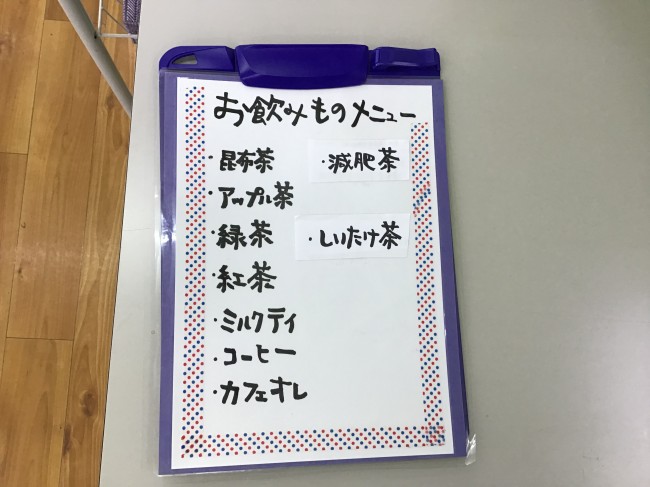 お飲みものメニュー
・昆布茶
・減肥茶
・アップル茶
・緑茶
・しいたけ茶
・紅茶
・ミルクティ
・コーヒー
・カフェオレ